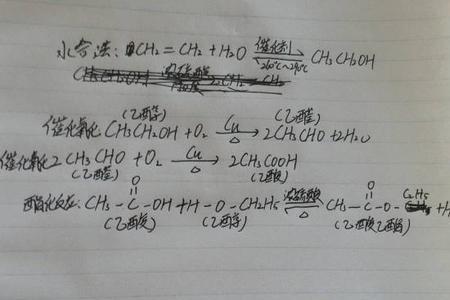 水合法: CH2=CH2+H2O 催化剂 260℃~290℃ CH3CH2OH
(乙醇) (乙醛)
催化氧化 CH3CH2OH+O2 Cu △ 2CH3CHO+2H2O
催化氧化 2CH3CHO+O2 Cu △ 2CH3COOH
(乙醛) (乙酸)
酯化反应: CH3-C(=O)-OH+H-O-C2H5 浓硫酸 △ CH3-C(=O)-O-C2H5+H
(乙酸) (乙醇) (乙酸乙酯)